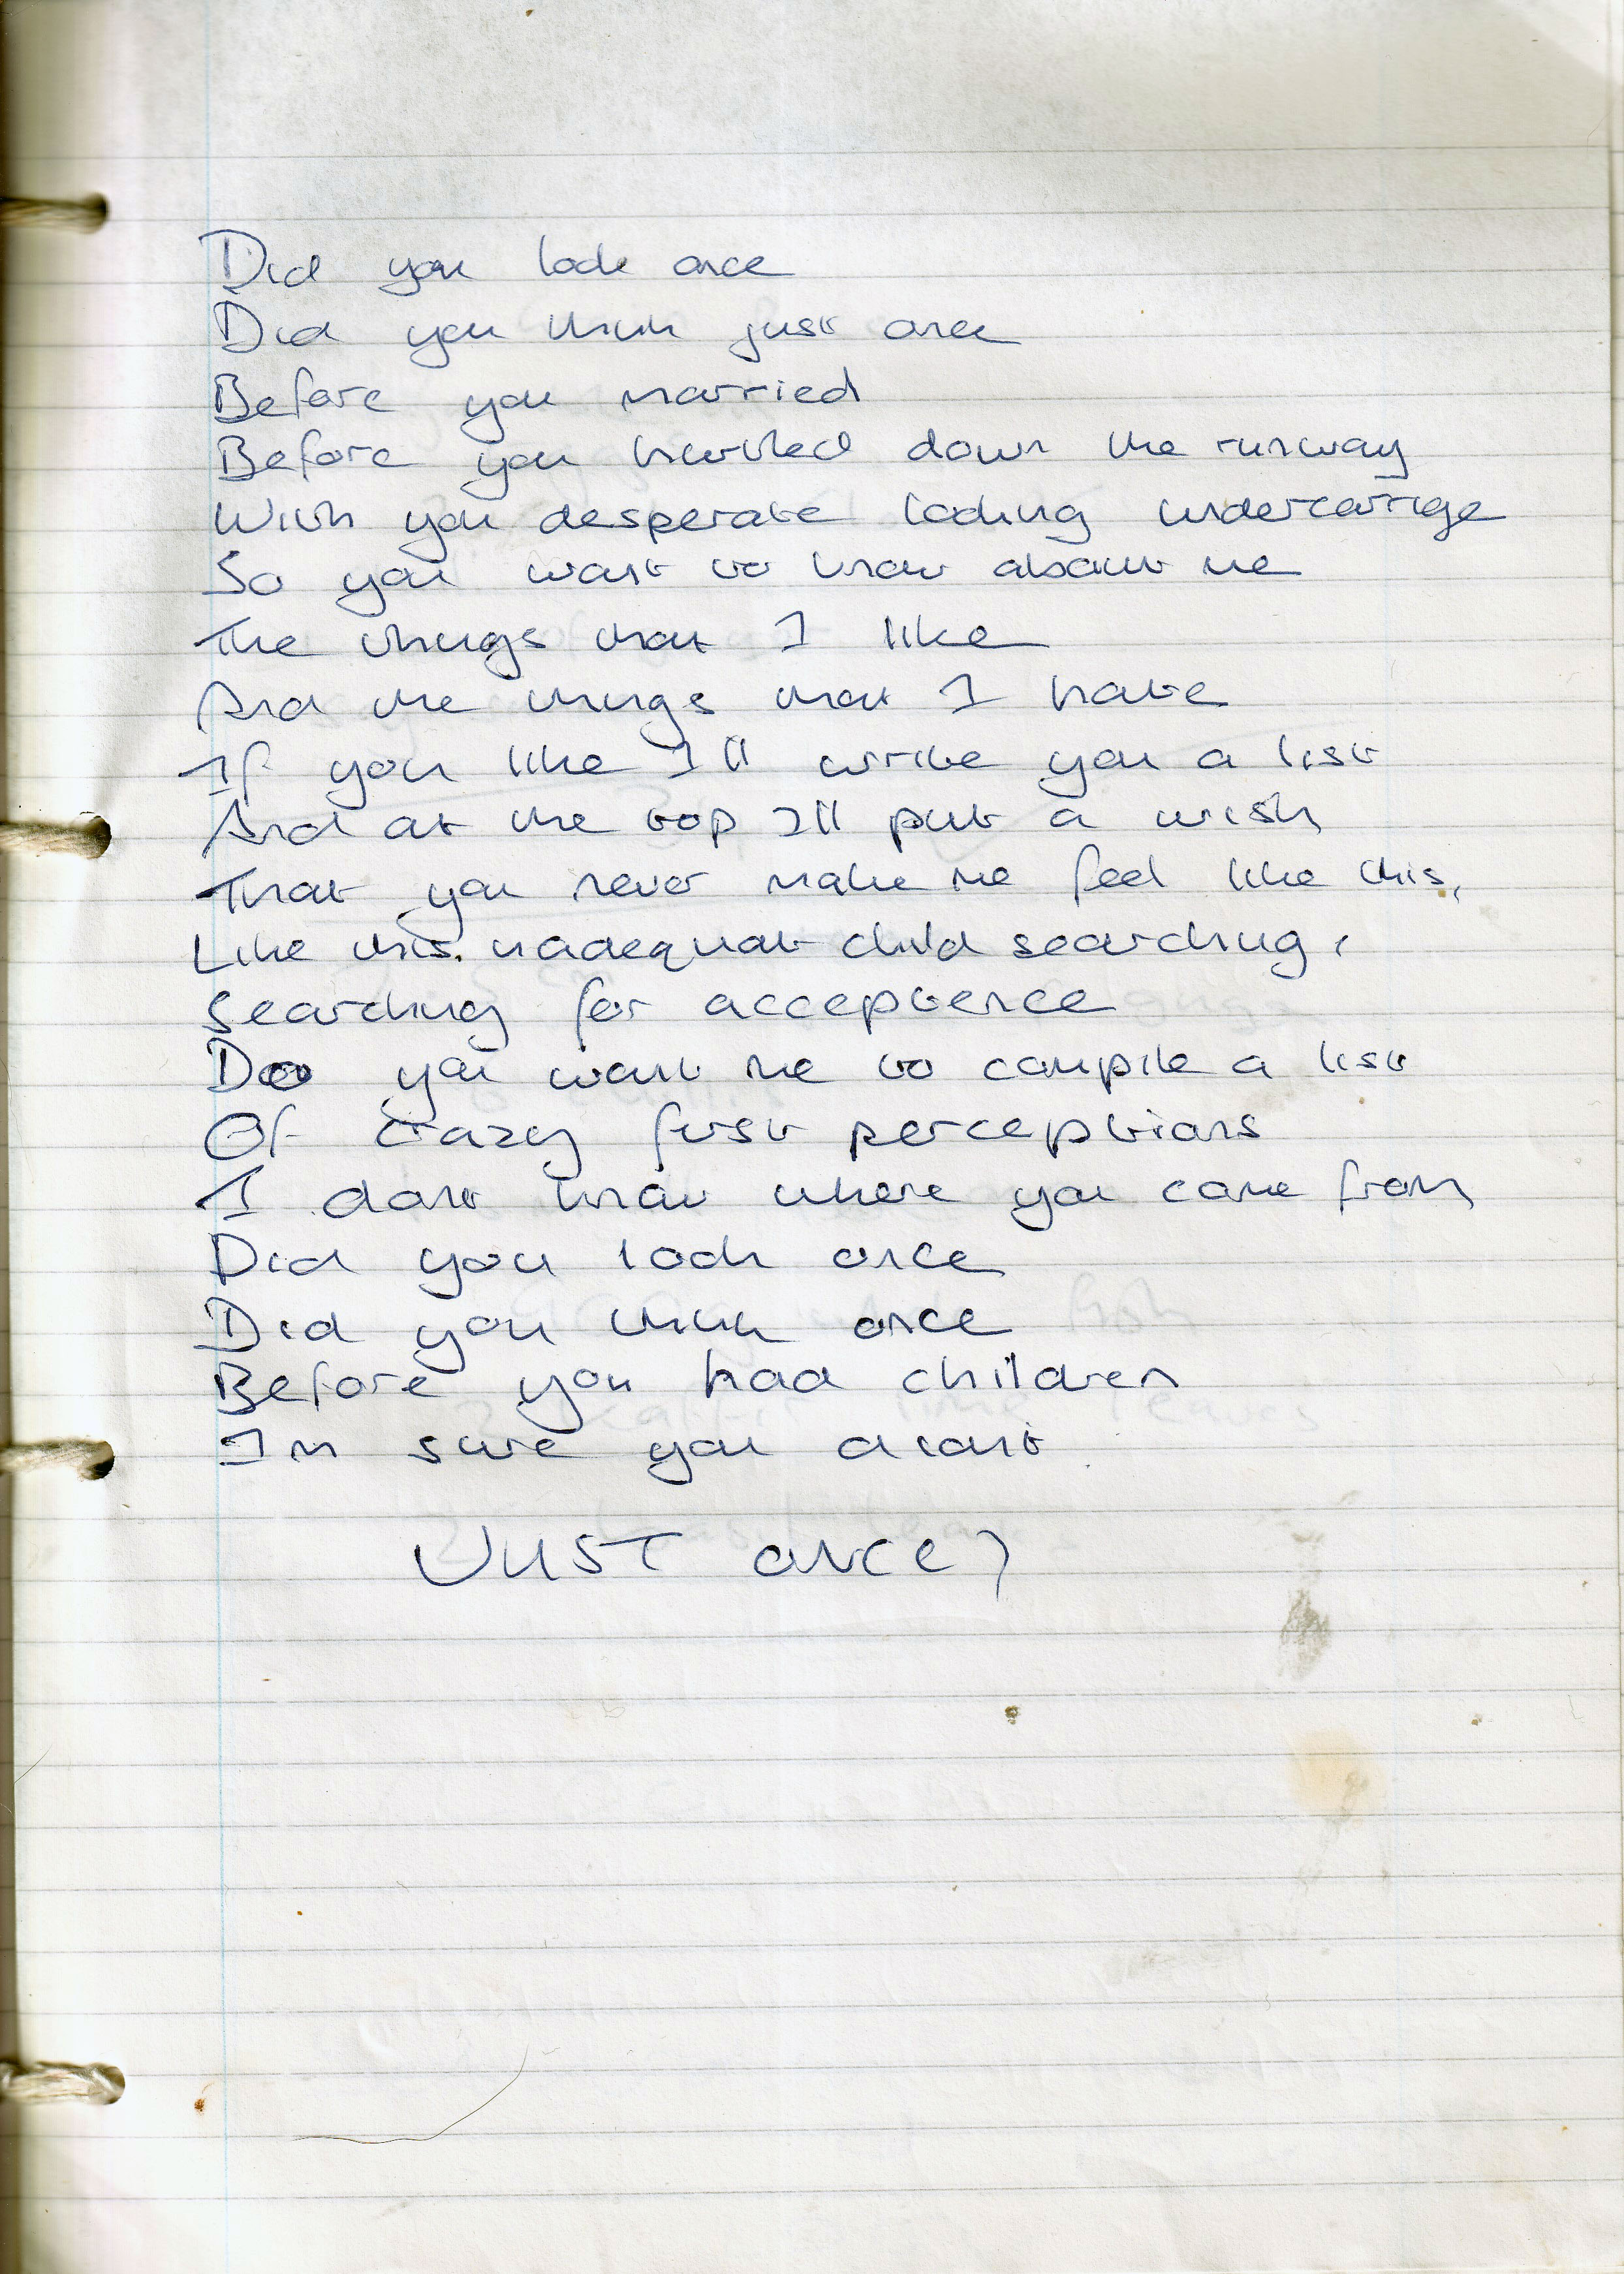 Did you look once
Did you think just once
Before you married
Before you hurtled down the runway
With you desperate looking undercarrige
So you want to know about me
The things that I like
And the things that I hate
If you like I'll write you a list
And at the top I'll put a wish
That you never make me feel like this,
Like this. inadequat child searching,
searching for acceptence
Do you want me to compile a list
Of crazy first perceptions
I dont know where you come from
Did you look once
Did you think once
Before you had children
Im sure you didnt
JUST ONCE?